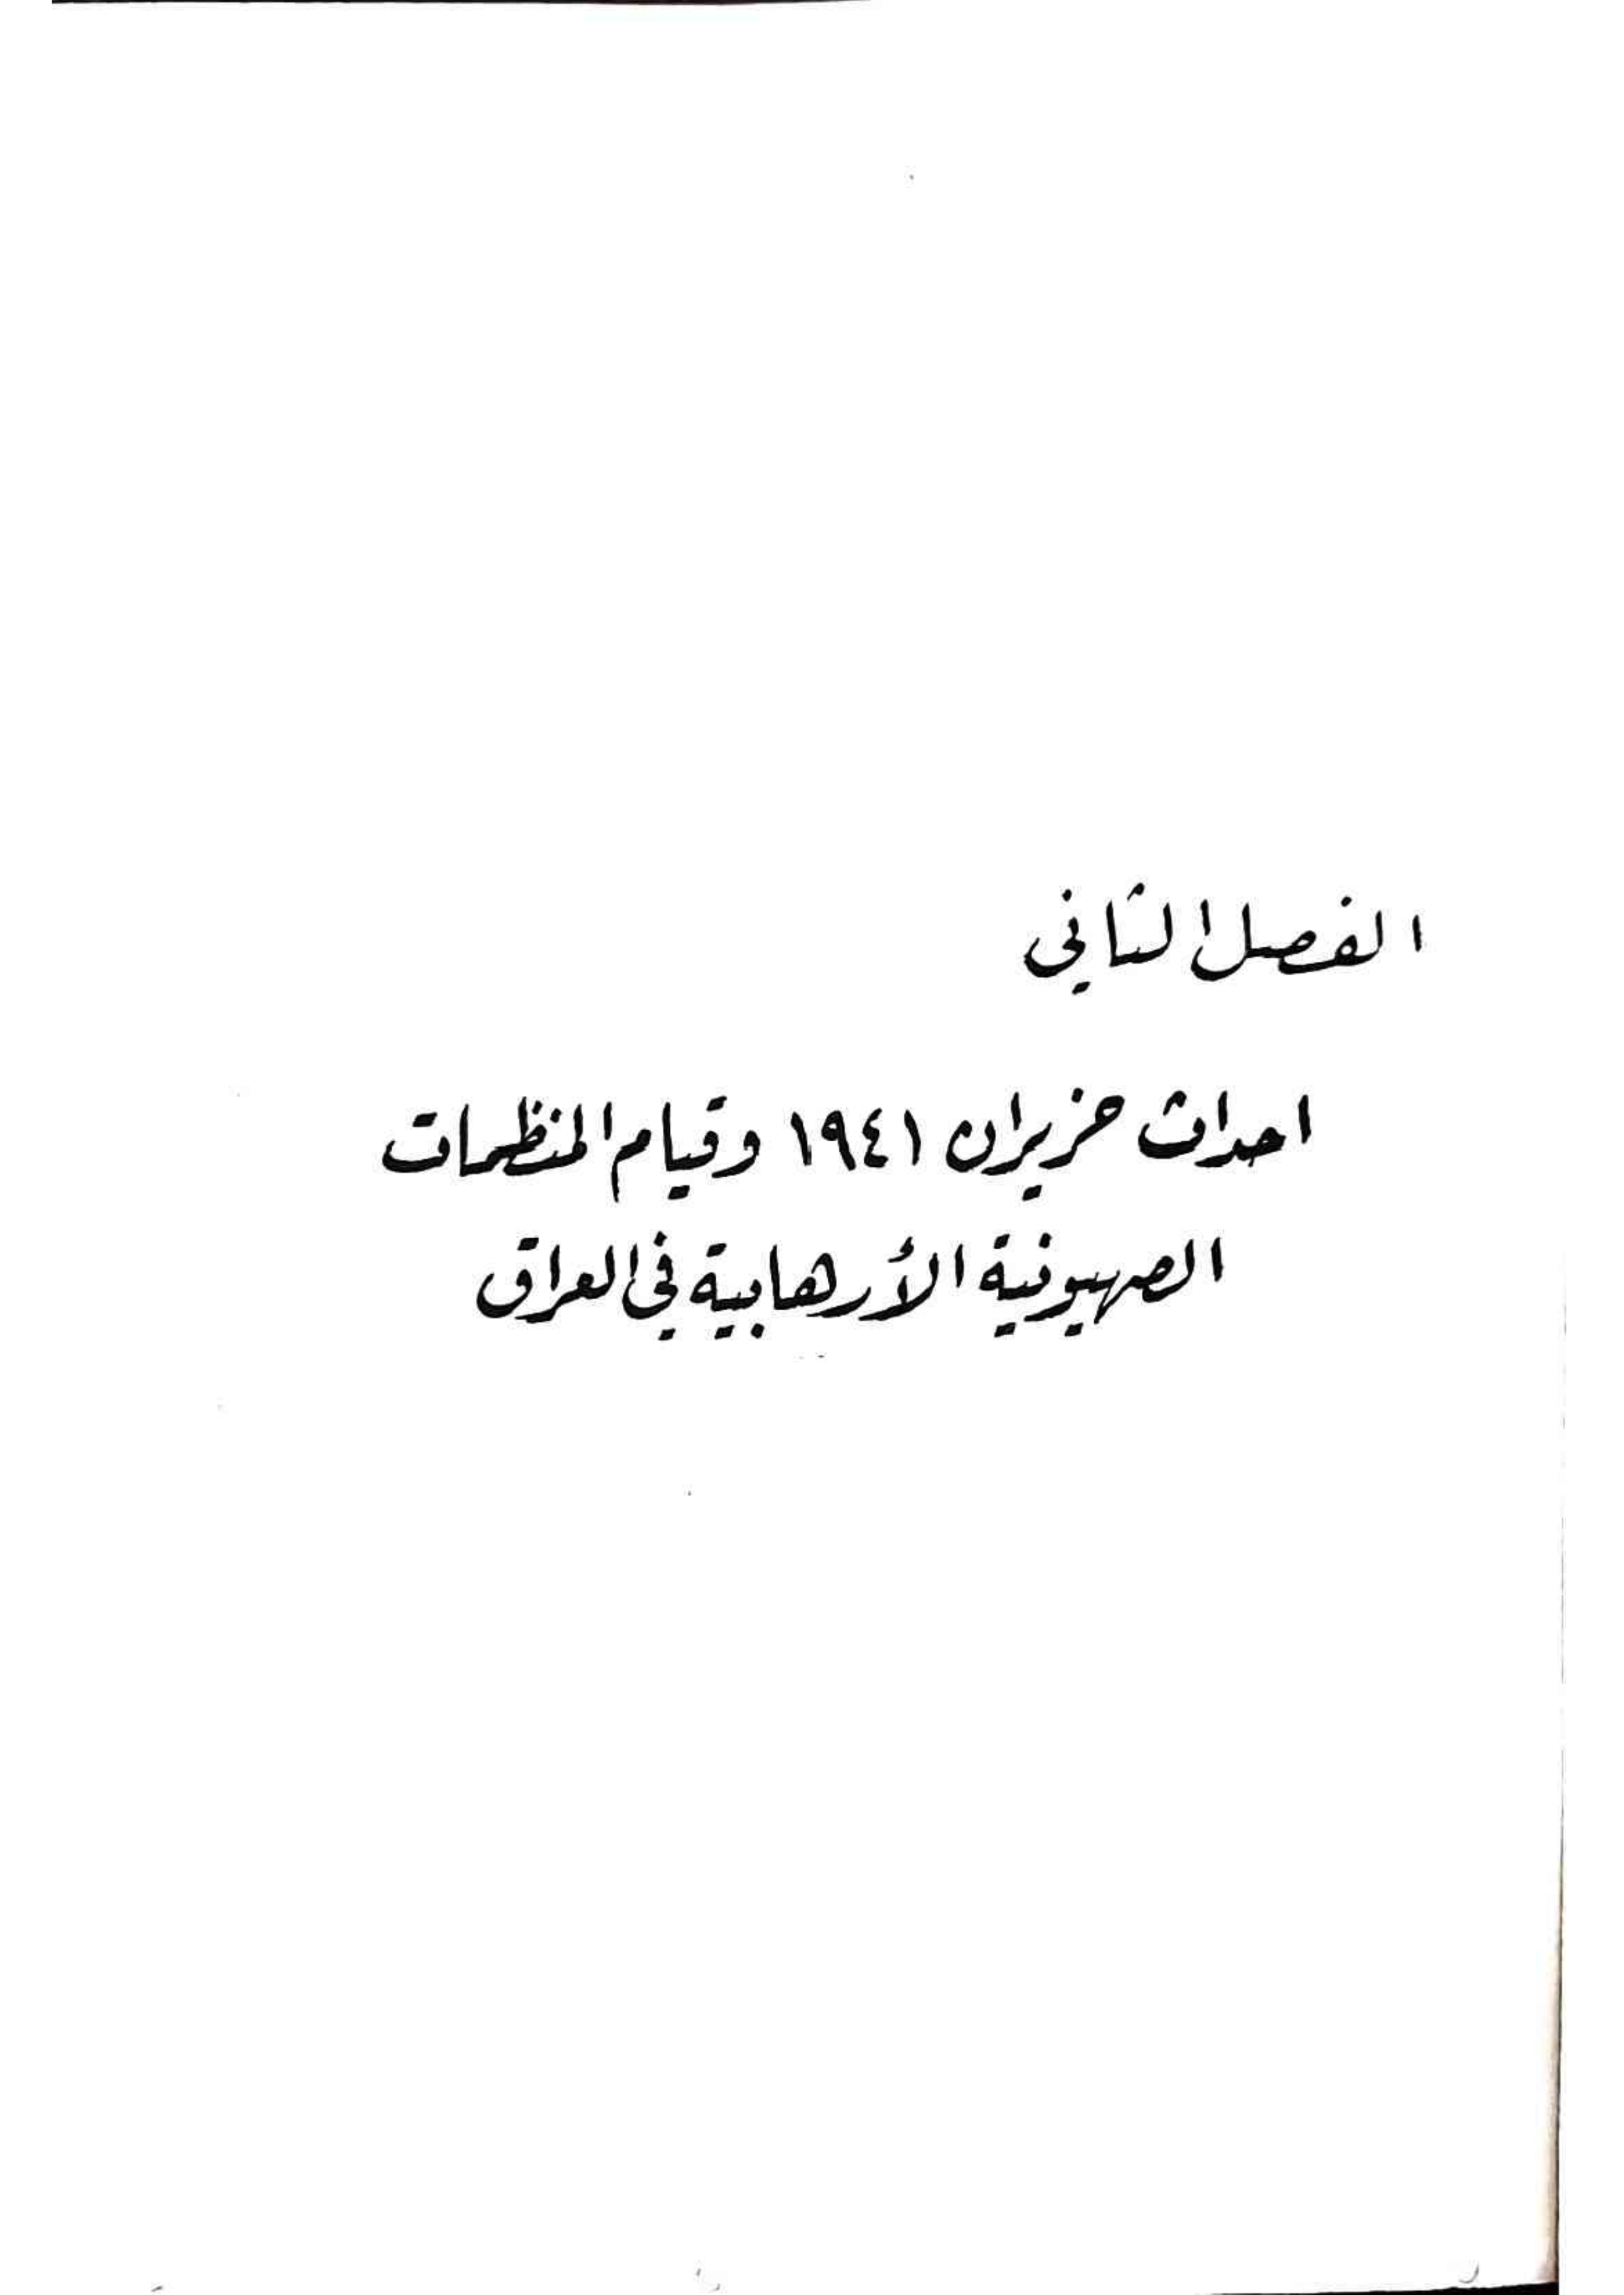 الفصل الثاني
احداث حزيران ١٩٤١ وقيام المنظمات
الصهيونية الأرهابية في العراق